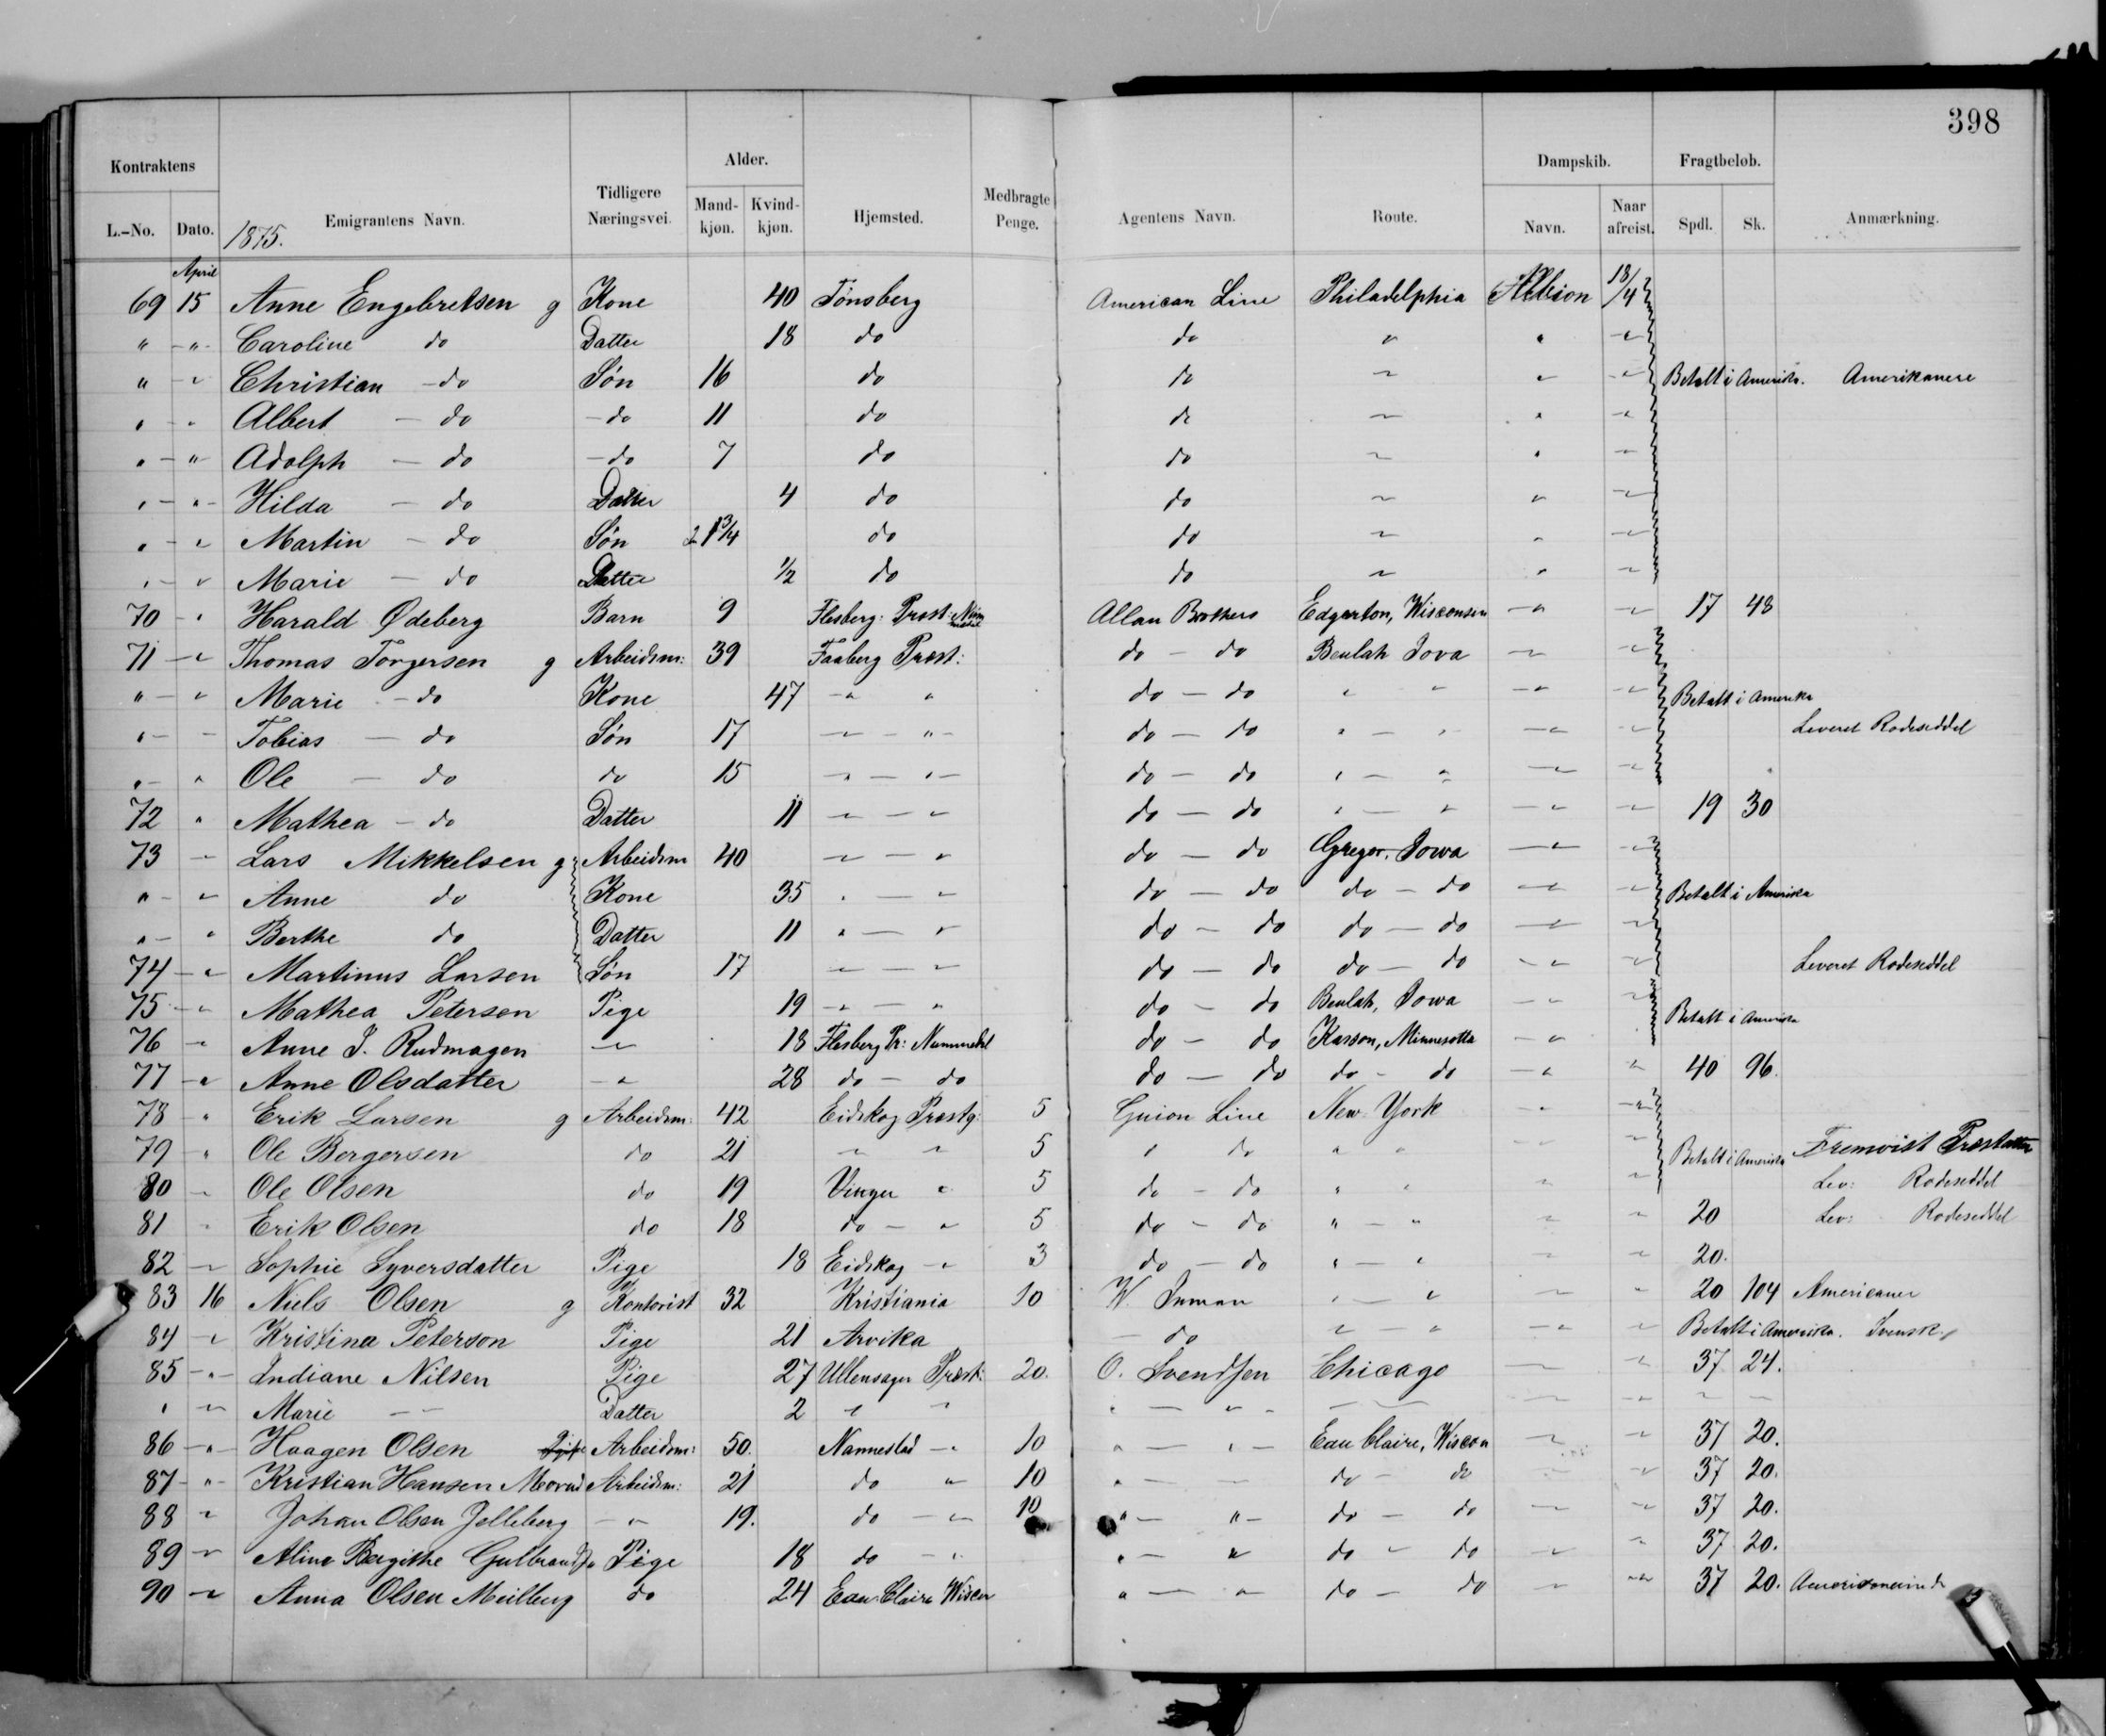 398
Kontraktens Emigrantens Navn. Tidligere Næringsvei. Alder. Hjemsted. Medbragte Penge. Agentens Navn. Route. Dampskib. Fragtbeløb. Anmærkning.
L.-No. Dato. 1875. Mand-kjøn. Kvind-kjøn. Navn. Naar afreist. Spdl. Sk.
April
69 15 Anne Engebretsen g Kone 40 Tønsberg American Line Philadelphia Albion 18/4
" " Caroline do Datter 18 do do " " "
" " Christian do Søn 16 do do " " " Betalt i Amerika. Amerikanere
" " Albert do do 11 do do " " "
" " Adolph do do 7 do do " " "
" " Hilda do Datter 4 do do " " "
" " Martin do Søn 2 1 3/4 do do " " "
" " Marie do Datter 1/2 do do " " "
70 " Harald Ødeberg Barn 9 Flesberg: Præst: Allan Brothers Edgerton, Wisconsin " " 17 48
71 " Thomas Torgersen g Arbeidsm: 39 Faaberg Præst: do do Beulah Iova " "
" " Marie do Kone 47 " " do do " " " " Betalt i Amerika
" " Tobias do Søn 17 " " do do " " " " Leveret Rodeseddel
" " Ole do do 15 " " do do " " " "
72 " Mathea do Datter 11 " " do do " " " " 19 30
73 " Lars Mikkelsen g Arbeidsm 40 " " do do Gregor, Iowa " "
" " Anne do Kone 35 " " do do do do " " Betalt i Amerika
" " Berthe do Datter 11 " " do do do do " "
74 " Martinus Larsen Søn 17 " " do do do do " " Leveret Rodeseddel
75 " Mathea Peterson Pige 19 " " do do Beulah, Iowa " " Betalt i Amerika
76 " Anne J. Rudmagen " 18 Flesberg Pr: Nummedal do do Kasson, Minnesotta "
77 " Anne Olsdatter " 28 do do do do do do " " 40 96.
78 " Erik Larsen g Arbeidsm: 42 Eidskog Præstg: 5 Guion Line New York " "
79 " Ole Bergersen do 21 " " 5 " do " " " " Betalt i Amerika Fremvist Præstatter
80 " Ole Olsen do 19 Vinger " 5 do do " " " " Lev: Rodeseddel
81 " Erik Olsen do 18 do " 5 do do " " " " 20 Lev: Rodeseddel
82 " Sophie Syversdatter Pige 18 Eidskog " 3 do do " " " " 20.
83 16 Niels Olsen g Kontorist 32 Kristiania 10 W. Inman " " " " 20 104 Americaner
84 " Kristina Peterson Pige 21 Arvika do " " " " Betalt i Amerika. Svensk.
85 " Indiane Nilsen Pige 27 Ullensager Præst: 20. O. Svendsen Chicago " " 37 24.
" " Marie " Datter 2 " " " " " " " " "
86 " Haagen Olsen Arbeidsm: 50. Nannestad " 10 " " Eau Claire, Wiscon " " 37 20.
87 " Kristian Hansen Arbeidsm: 21 do " 10 " " do do " " 37 20.
88 " Johan Olsen Jelleberg " 19. do " 10 " " do do " " 37 20.
89 " Aline Bergithe Pige 18 do " " " do do " " 37 20.
90 " Anna Olsen do 24 Eau Claire Wiscon " " do do " " 37 20.